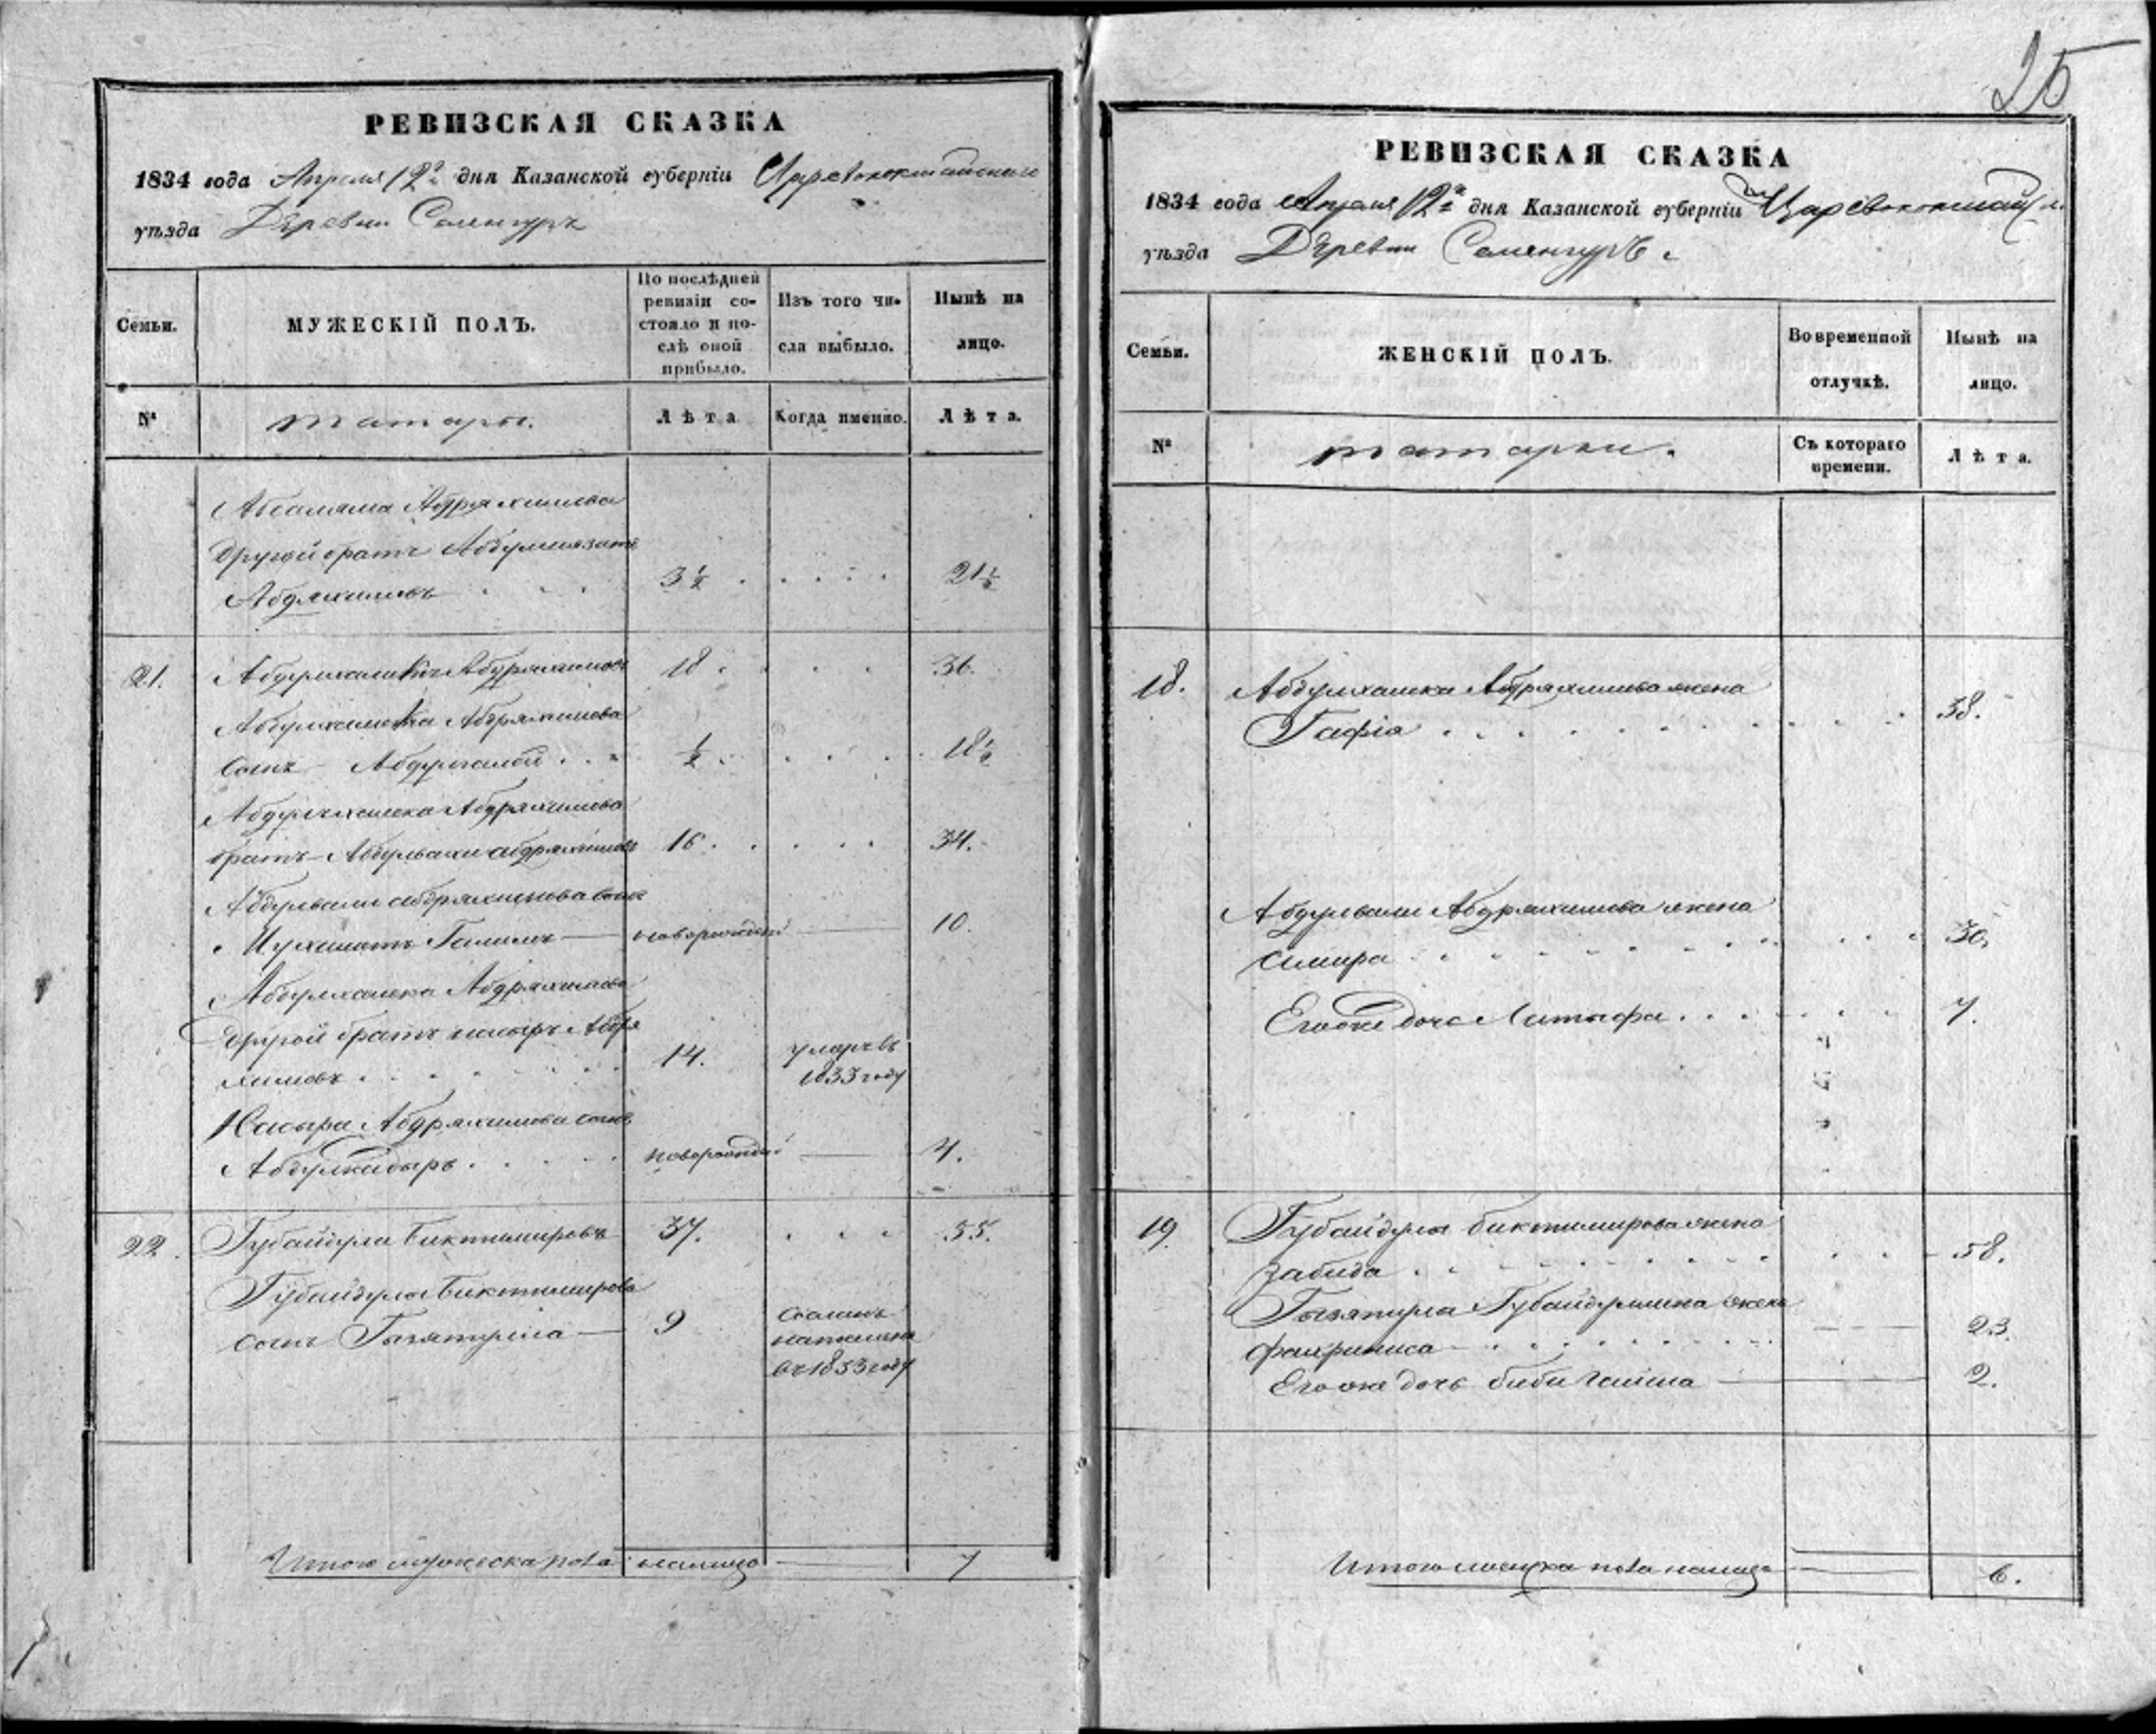 25
РЕВИЗСКАЯ СКАЗКА
1834 года Апреля 12го дня Казанской губернiи Царевококшайскаго
уѣзда Деревни Соленгуръ
Семьи.
МУЖЕСКIЙ ПОЛЪ.
По послѣдней ревизiи состояло и послѣ оной прибыло.
Изъ того числа выбыло.
Нынѣ на лицо.
№
татары.
Лѣта
Когда именно.
Лѣта.
Абдряхимова
Другой братъ
Абдряхимовъ 3 ½ 21 ½
21. Абдряхимовъ 18 36.
Абдряхимова
сынъ ½ 18 ½
Абдряхимова
братъ Абдулвали Абдряхимовъ 16 34.
Абдулвали Абдряхимова сынъ
Мухаметъ Галимъ новорожденъ 10.
Абдряхимова
Другой братъ Насыръ Абдря
химовъ 14. умеръ въ
1833 году
Насыра Абдряхимова сынъ
Абдулкадыръ новорожден 4.
22. Губайдулла Биктимировъ 37. 55.
Губайдуллы Биктимирова
сынъ 9
въ 1833 году
Итого мужеска пола налицо 7
РЕВИЗСКАЯ СКАЗКА
1834 года Апреля 12го дня Казанской губернiи Царевококшайс.
уѣзда Деревни Соленгуръ.
Семьи.
ЖЕНСКIЙ ПОЛЪ.
Во временной отлучкѣ.
Нынѣ на лицо.
№
татарки.
Съ котораго времени.
Лѣта.
18. Абдряхимова жена
Гафiя 38.
Абдулвали Абдряхимова жена
30.
Егоже дочь Латыфа 7.
19. Губайдуллы Биктимирова жена
Забида 58.
Губайдуллина жена
23.
Егоже дочь Биби 2.
Итого женска пола налицо 6.